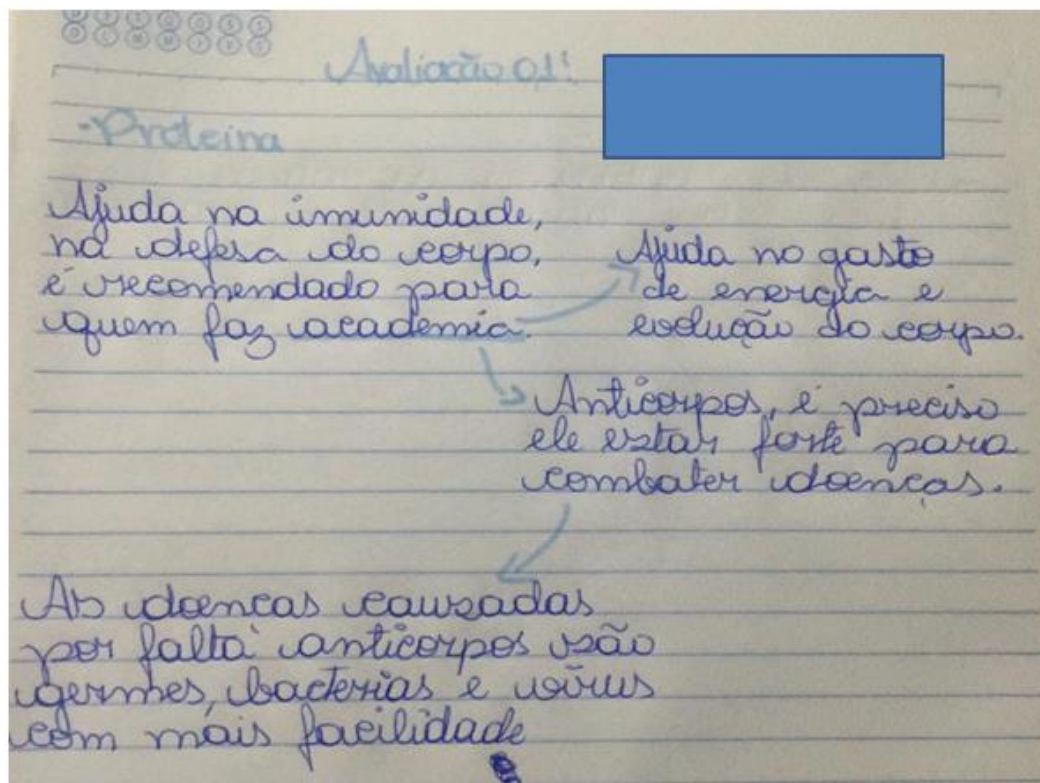 Avaliação 01!
-Proteina
Ajuda na imunidade,
na defesa do corpo,
é recomendado para
quem faz academia.
Ajuda no gasto
de energia e
evolução do corpo.
Anticorpos, é preciso
ele estar forte para
combater doenças.
As doenças causadas
por falta anticorpos são
germes, bacterias e vírus
com mais facilidade